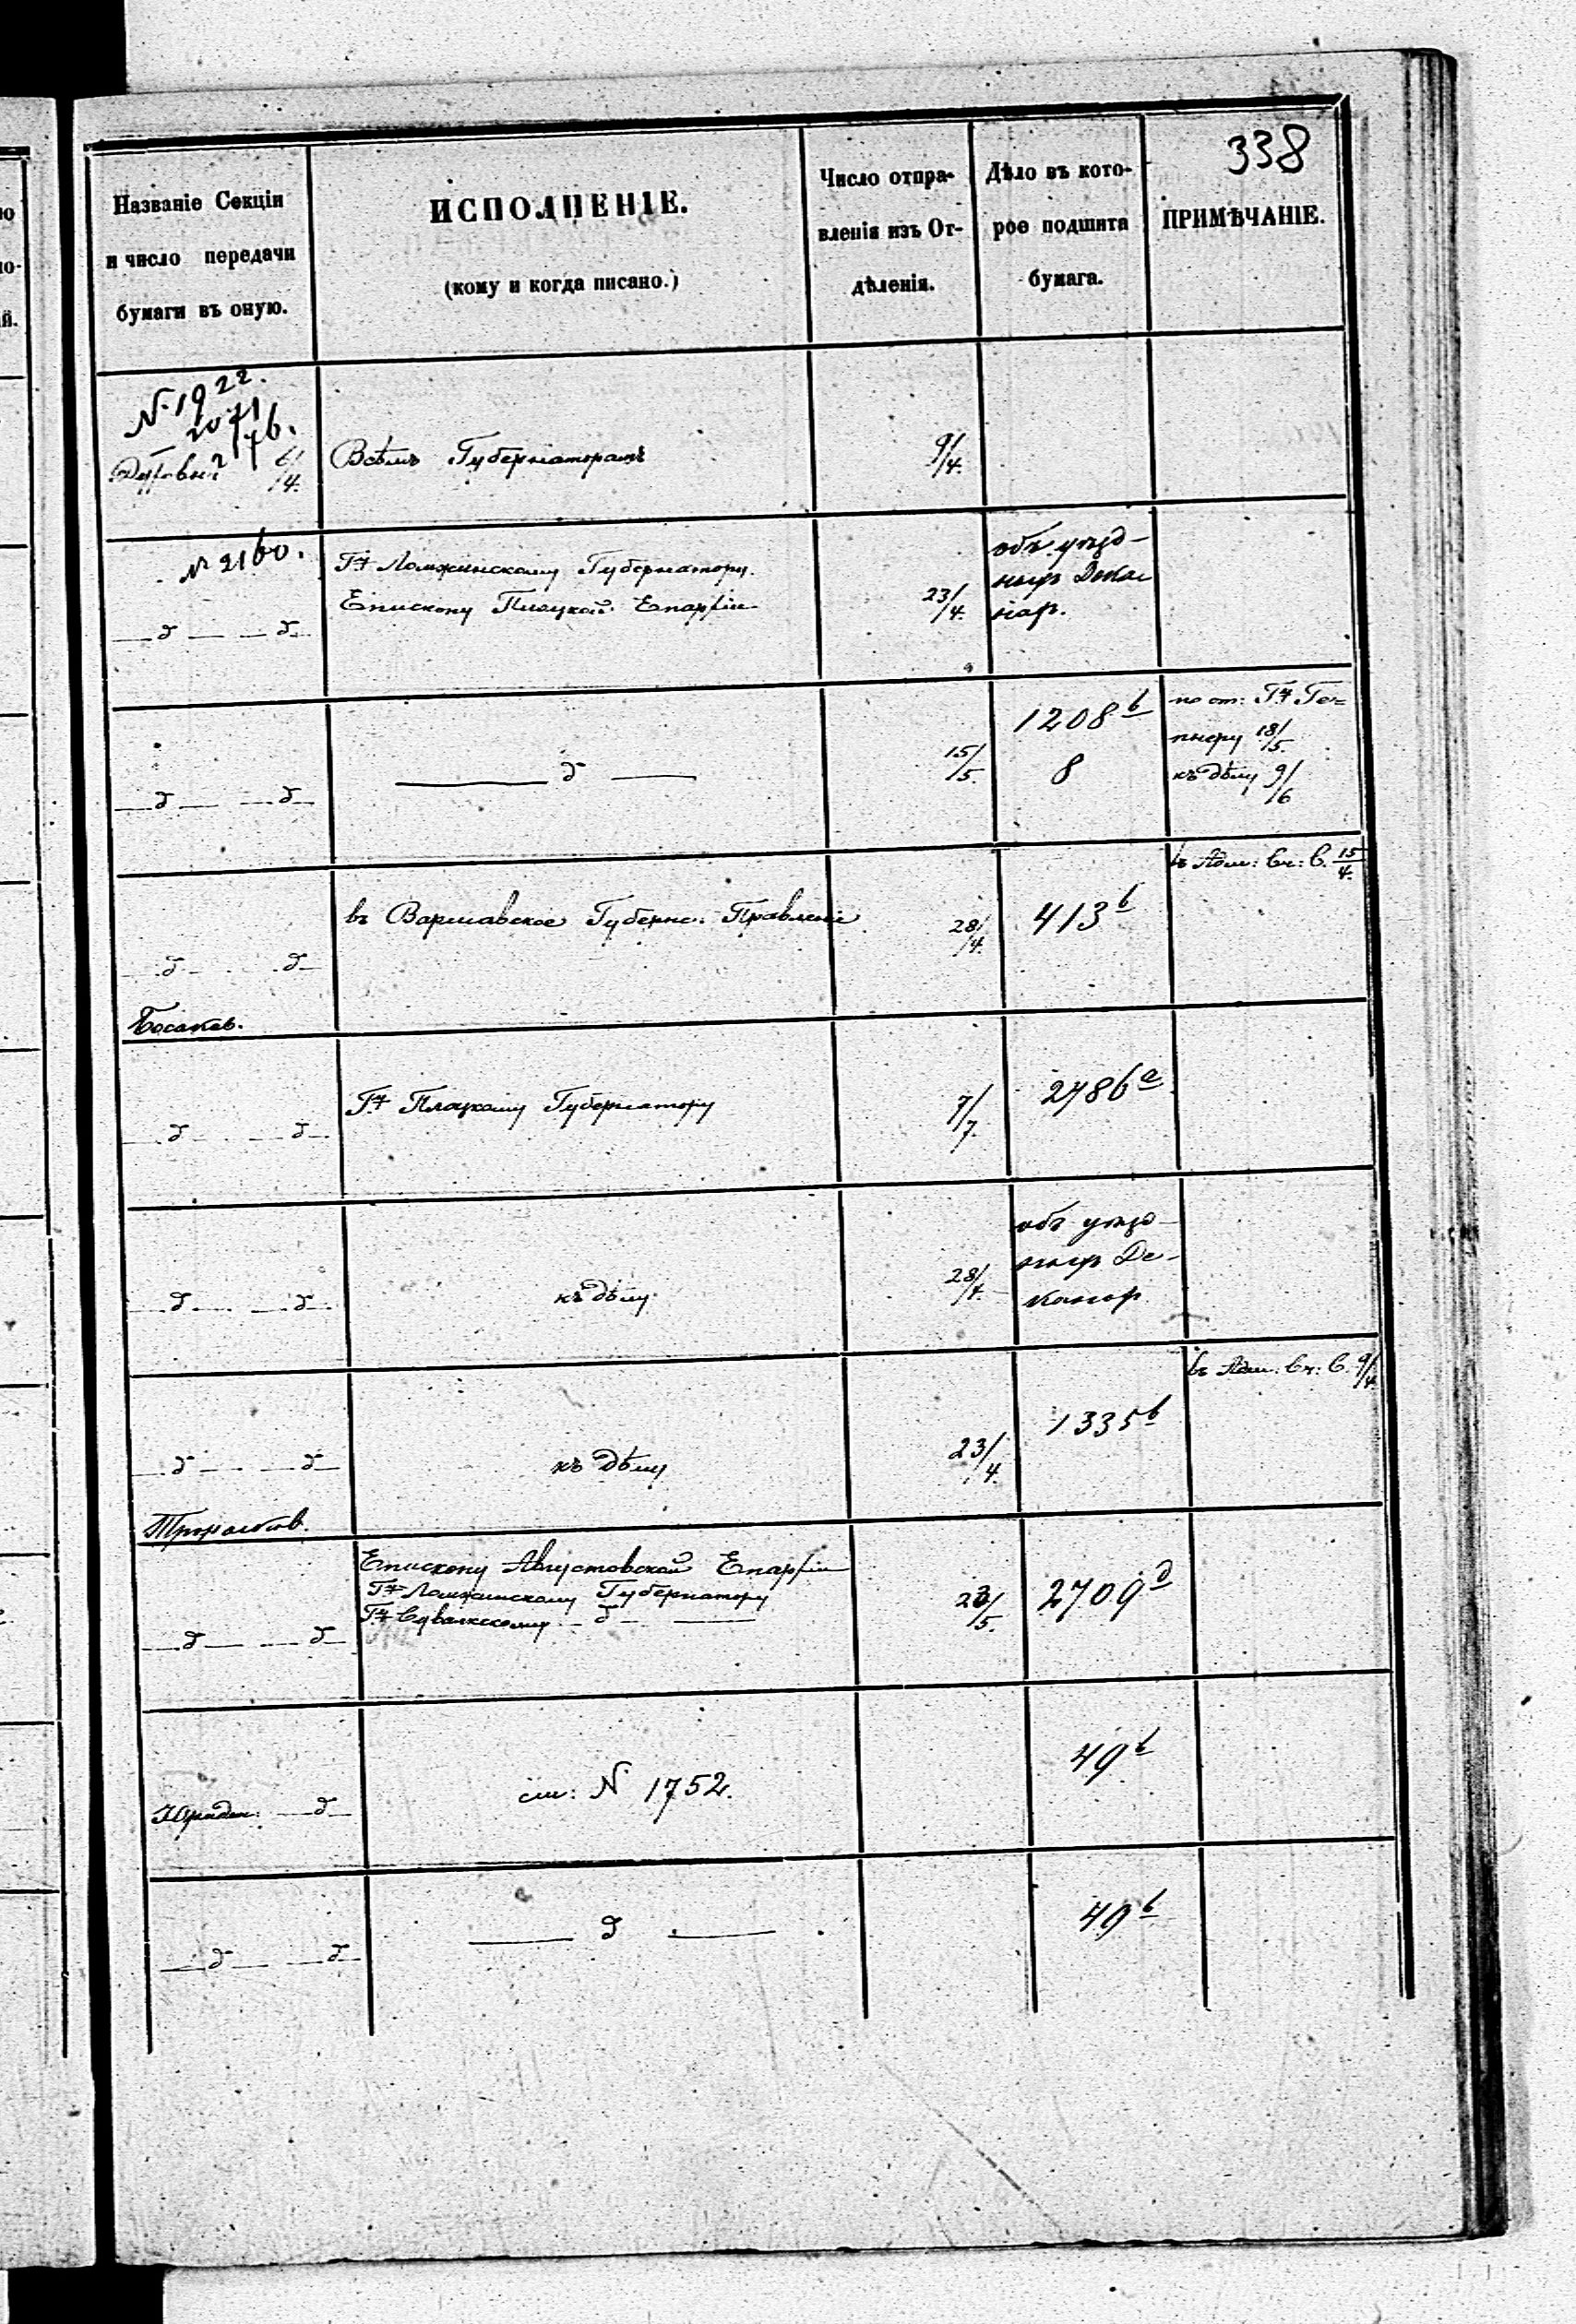 338
Названіе Секціи
и число передачи
бумаги въ оную.
ИСПОЛНЕНІЕ.
(кому и когда писано.)
Число отпра-
вленія изъ От-
дѣленія.
Дѣло въ кото-
рое подшита
бумага.
ПРИМѢЧАНІЕ.
№ 1922.
2071
Всѣмъ Губернаторамъ
9/4.
№ 2160.
Ломжинскому Губернатору.
Епископу Плоцкой Епархіи
23/4.
объ уѣзд-
ныхъ Дека
нар.
д
15/5.
1208 б
8
по от:
пнеру 18/5.
къ дѣлу 9/6
въ Варшавское Губернс: Правленіе
28/4.
413 б
въ Адм: 15/4.
Плоцкому Губернатору
7/7.
2786 а
къ дѣлу
28/4.
объ уѣзд-
ныхъ Де-
канар
къ дѣлу
23/4.
1335 б
въ Адм: 9/4
Епископу Августовской Епархіи
Ломжинскому Губернатору
Сувалкскому — д —
2709 д
Юридич: — д —
см: № 1752.
49 б
— д — — д —
— д —
49 б